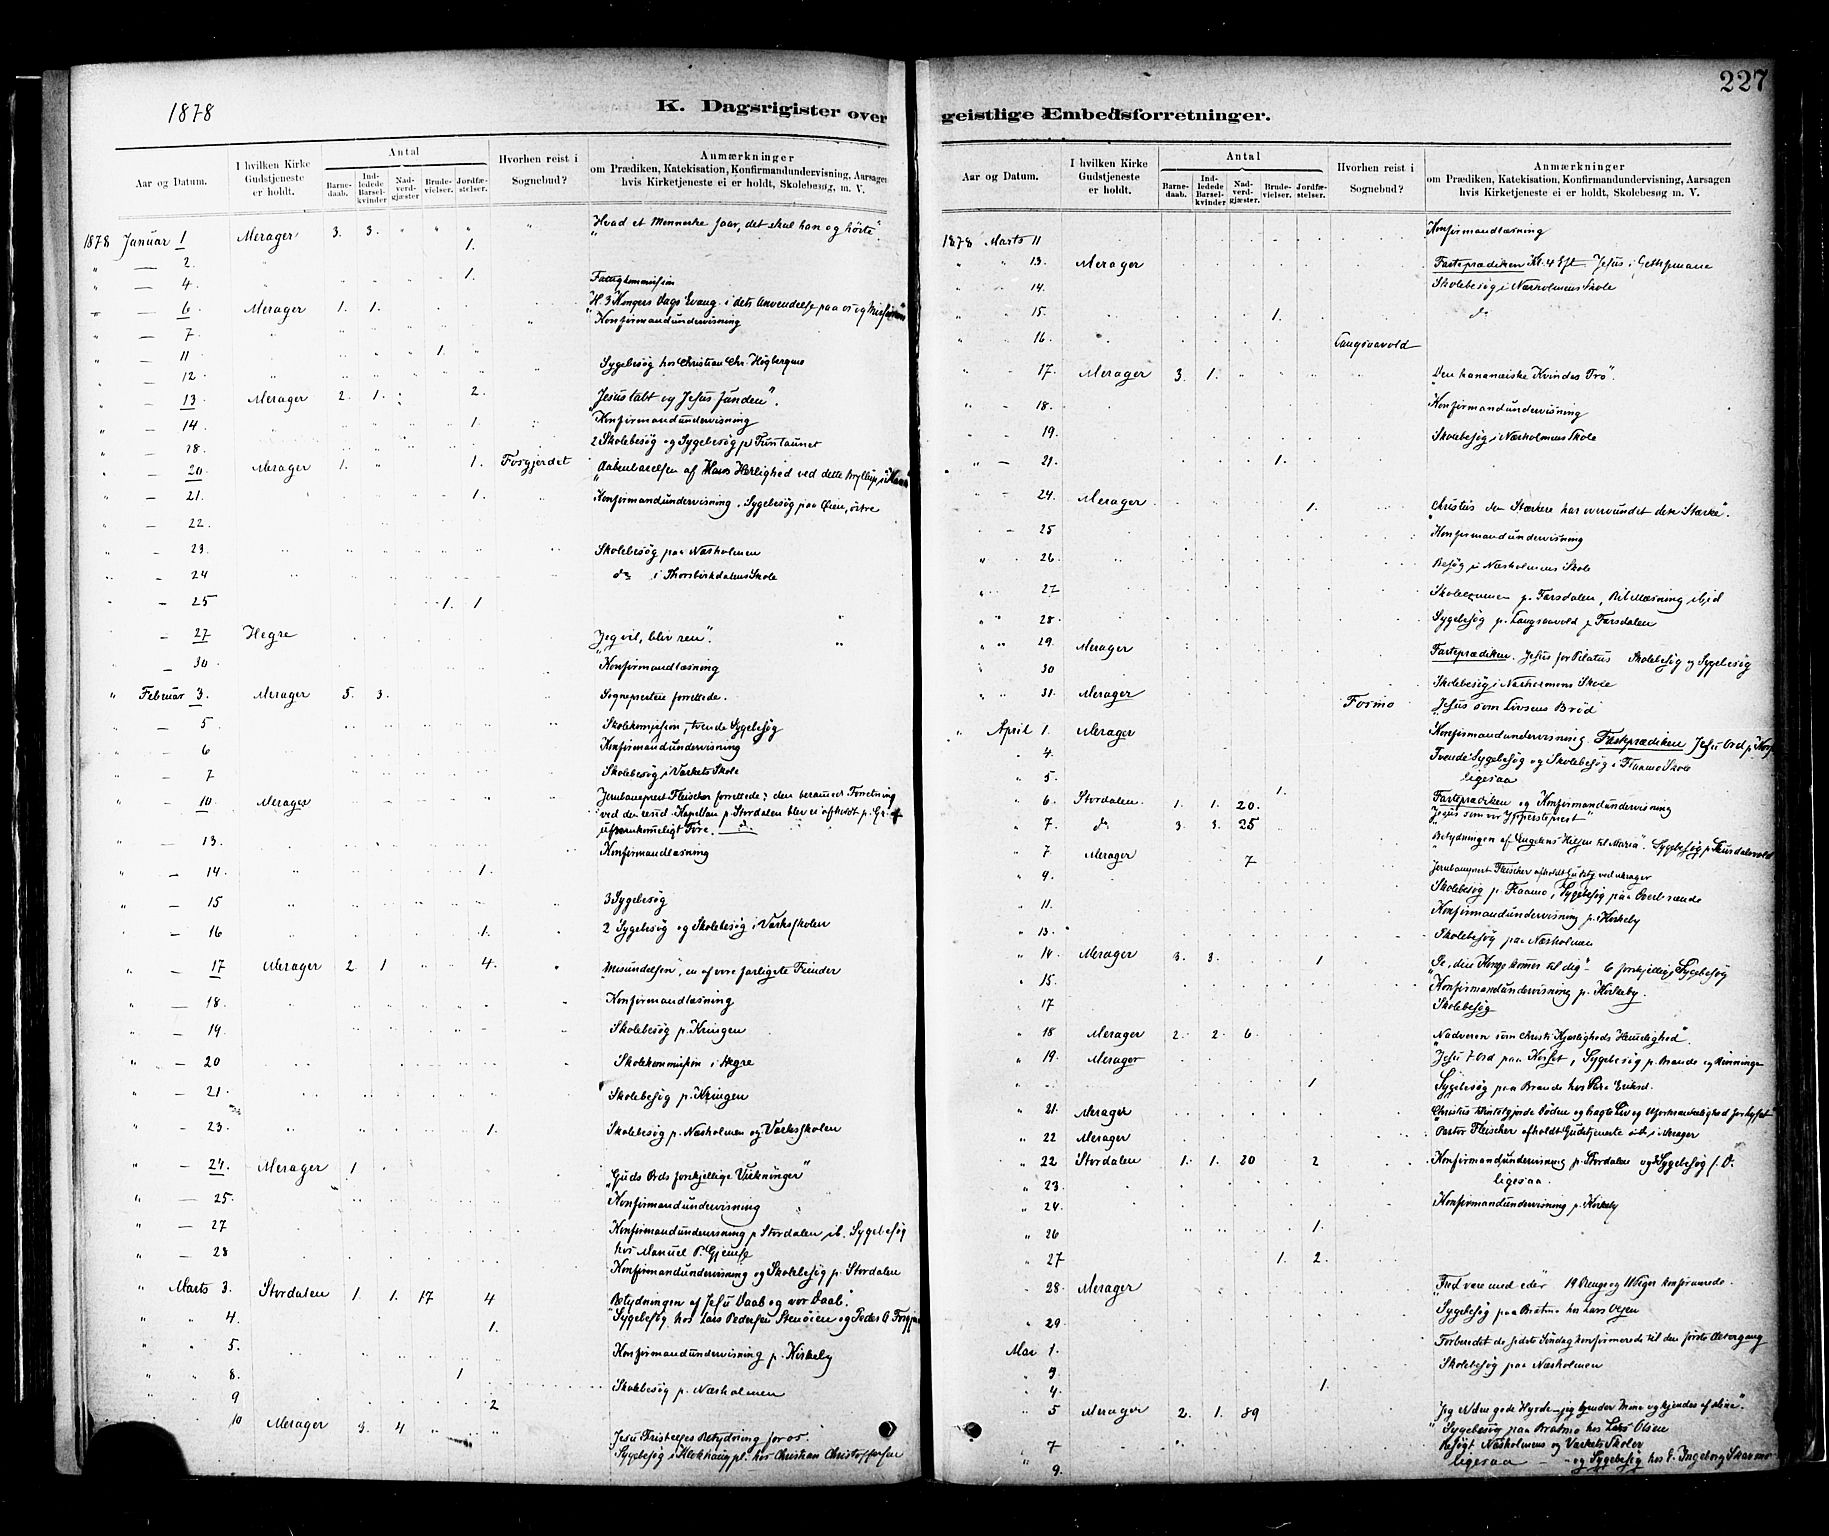 1878
K. Dagsrigister over
Aar og Datum.
I hvilken Kirke Gudstjeneste er holdt.
Antal
Barnedaab.
Indledede Barselkvinder
Nadverdgjæster
Brudevielser.
Jordfæstelser.
Hvorhen reist i Sognebud?
Anmærkninger
om Prædiken, Katekisation, Konfirmandundervisning, Aarsagen
hvis Kirketjeneste ei er holdt, Skolebesøg, m. V.
1878 Januar 1 Merager 3. 3. " " " " "Hvad et Menneske saar, det skal han og høste".
" — 2. " 1.
" — 4. 1. Fattigkommission
" — 6 Merager 1. 1. H. 3 Kongers Dags Evang. i dets Anvendelse paa os og Missionen
" — 7 Konfirmandundervisning
" — 11 1.
" — 12 Sygebesøg hos Christian Chr. Høgbergmo
" — 13 Merager 2. 1. 2. "Jesus tabt og Jesus funden".
" — 14 1. Konfirmandundervisning
" — 18. 2 Skolebesøg og Sygebesøg p.
" — 20 Merager 1. " 1. Fosgjerdet "Aabenbarelsen af Hans Herlighed ved dette Bryllup i Kana"
" — 21. 1. Konfirmandundervisning. Sygebesøg paa Øien, østre
" — 22.
" — 23. Skolebesøg paa Næsholmen
" — 24 do i Thorsbirkdalens Skole
" — 25 1. 1
" — 27 Hegre "Jeg vil, bliv ren".
— 30 Konfirmandlæsning
" Februar 3. Merager 5. 3. Sognepresten forrettede.
" — 5 Skolekommission, tvende Sygebesøg
" — 6 Konfirmandundervisning
" — 7 Skolebesøg i Værkets Skole
" — 10 Merager Jernbaneprest Fleischer forrettede; den berammede Forretning
ved den resid. Kapellan p. Stordalen blev ei afholdt p. Gr. af
ufremkommeligt Føre.
" — 13. Konfirmandlæsning
" — 14 1.
" — 15 3 Sygebesøg
" — 16 1. 2 Sygebesøg og Skolebesøg i Værksskolen
" — 17 Merager 2. 1 4. "Misundelsen", en af vore farligste Fiender
" — 18. Konfirmandlæsning
" — 19. Skolebesøg p. Kringen
" — 20 Skolekommission i Hegre
" — 21. Skolebesøg p. Kringen
" — 23. 1. Skolebesøg p. Næsholmen og Værksskolen
" — 24. Merager 1 "Guds Ords forskjellige Virkninger"
" — 25. Konfirmandundervisning
" — 27 Konfirmandundervisning p. Stordalen Sygebesøg
" — 28 hos Manuel P. Gjemse
Konfirmandundervisning og Skolebesøg p. Stordalen
" Marts 3. Stordalen 1. 1. 17 4 "Betydningen af Jesu Daab og vor Daab."
" " 4. 1. Sygebesøg hos Lars Pedersen Stenøien og Peder O
" " 5. Konfirmandundervisning p. Kirkeby
" " 8. 1
" " 9 2 Skolebesøg p. Næsholmen
" " 10 Merager 3. 4 Jesu Fristelses Betydning for os.
Sygebesøg i Klokhaugpl. hos Christian Christoffersen
227
geistlige Embedsforretninger.
Aar og Datum.
I hvilken Kirke Gudstjeneste er holdt.
Antal
Barnedaab.
Indledede Barselkvinder
Nadverdgjæster.
Brudevielser.
Jordfæstelser.
Hvorhen reist i Sognebud?
Anmærkninger
om Prædiken, Katekisation, Konfirmandundervisning, Aarsagen
hvis Kirketjeneste ei er holdt, Skolebesøg m. V.
1878 Marts 11 Konfirmandlæsning
" " 13. Merager Fasteprædiken Kl. 4 Eft. Jesus i Gethsemane
" " 14. Skolebesøg i Næsholmens Skole
" " 15. 1. do
" " 16. Langsvavold
" " 17. Merager 3. 1. "Den kananæiske Kvindes Tro".
" " 18. Konfirmandundervisning
" " 19. Skolebesøg i Næsholmens Skole
" — 21. 1.
" — 24. Merager 1. "Christus den Stærkere har overvundet den Stærke".
— 25 Konfirmandundervisning
" 26 Besøg i Næsholmens Skole
" " 27 p. Farsdalen, Bibellæsning
" " 28. Sygebesøg p. Langsvavold
" " 29. Merager Fasteprædiken. Jesus for Pilatus Skolebesøg og Sygebesøg
" 30 Skolebesøg i Næsholmens Skole
" 31. Merager Fosmo "Jesus som Livsens Brød
" April 1. Merager Konfirmandundervisning. Fasteprædiken Jesu Ord p. Kors
" 4. Tvende Sygebesøg og Skolebesøg i Flaamo Skole
" 5. 1. ligesaa
" 6. Stordalen 1. 1. 20. Fasteprædiken og Konfirmandundervisning
" 7. do 3. 3. 25 "Jesus som vor Ypperstepræst"
" 7 Merager 7 "Betydningen af Engelens Hilsen til Maria". Sygebesøg
" 9. Jernbaneprest Fleischer afholdt Gudstj. ved Merager
" 11. Skolebesøg p. Flaamo, Sygebesøg paa
" 13. Konfirmandundervisning p. Kirkeby
Skolebesøg paa Næsholmen
" 14 Merager 3. 3. 1 "Se, din Konge kommer til dig" - 6 forskjellige Sygebesøg
" 15. Konfirmandundervisning p. Kirkeby.
" 17 Skolebesøg
" 18 Merager 2. 2 6. "Nadveren som Christi Kjærligheds Hemmelighed".
" 19. Merager "Jesu 7 Ord paa Korset, Sygebesøg p. Brande og
" 1 Sygebesøg paa Brande hos Eriksd.
" 21. Merager
" 22 Merager Pastor Fleischer afholdt Gudstjeneste i Merager
" 22 Stordalen 1. 1. 20 2 Konfirmandundervisning p. Stordalen og Sygebesøg
" 23. ligesaa.
" 24. Konfirmandundervisning p. Kirkeby
" 26 1.
" 27 1. 2.
" 28. Merager "Fred være med eder" 19 Drenge og 11 Piger konfirmerede.
" 29. Sygebesøg paa Bratmo hos Lars Olsen
Mai 1. Forberedt de sidste Søndag konfirmerede til den første Altergang
" 3. Skolebesøg paa Næsholmen
" 4. 1.
" 5 Merager 2. 1. 89 "Jeg er den gode Hyrde – jeg kjender Mine og kjendes af Mine".
Sygebesøg paa Bratmo hos Lars Olsen
" 7 Besøgt Næsholmens og Værkets Skoler
" 9. ligesaa — og Sygebesøg hos Ingeborg